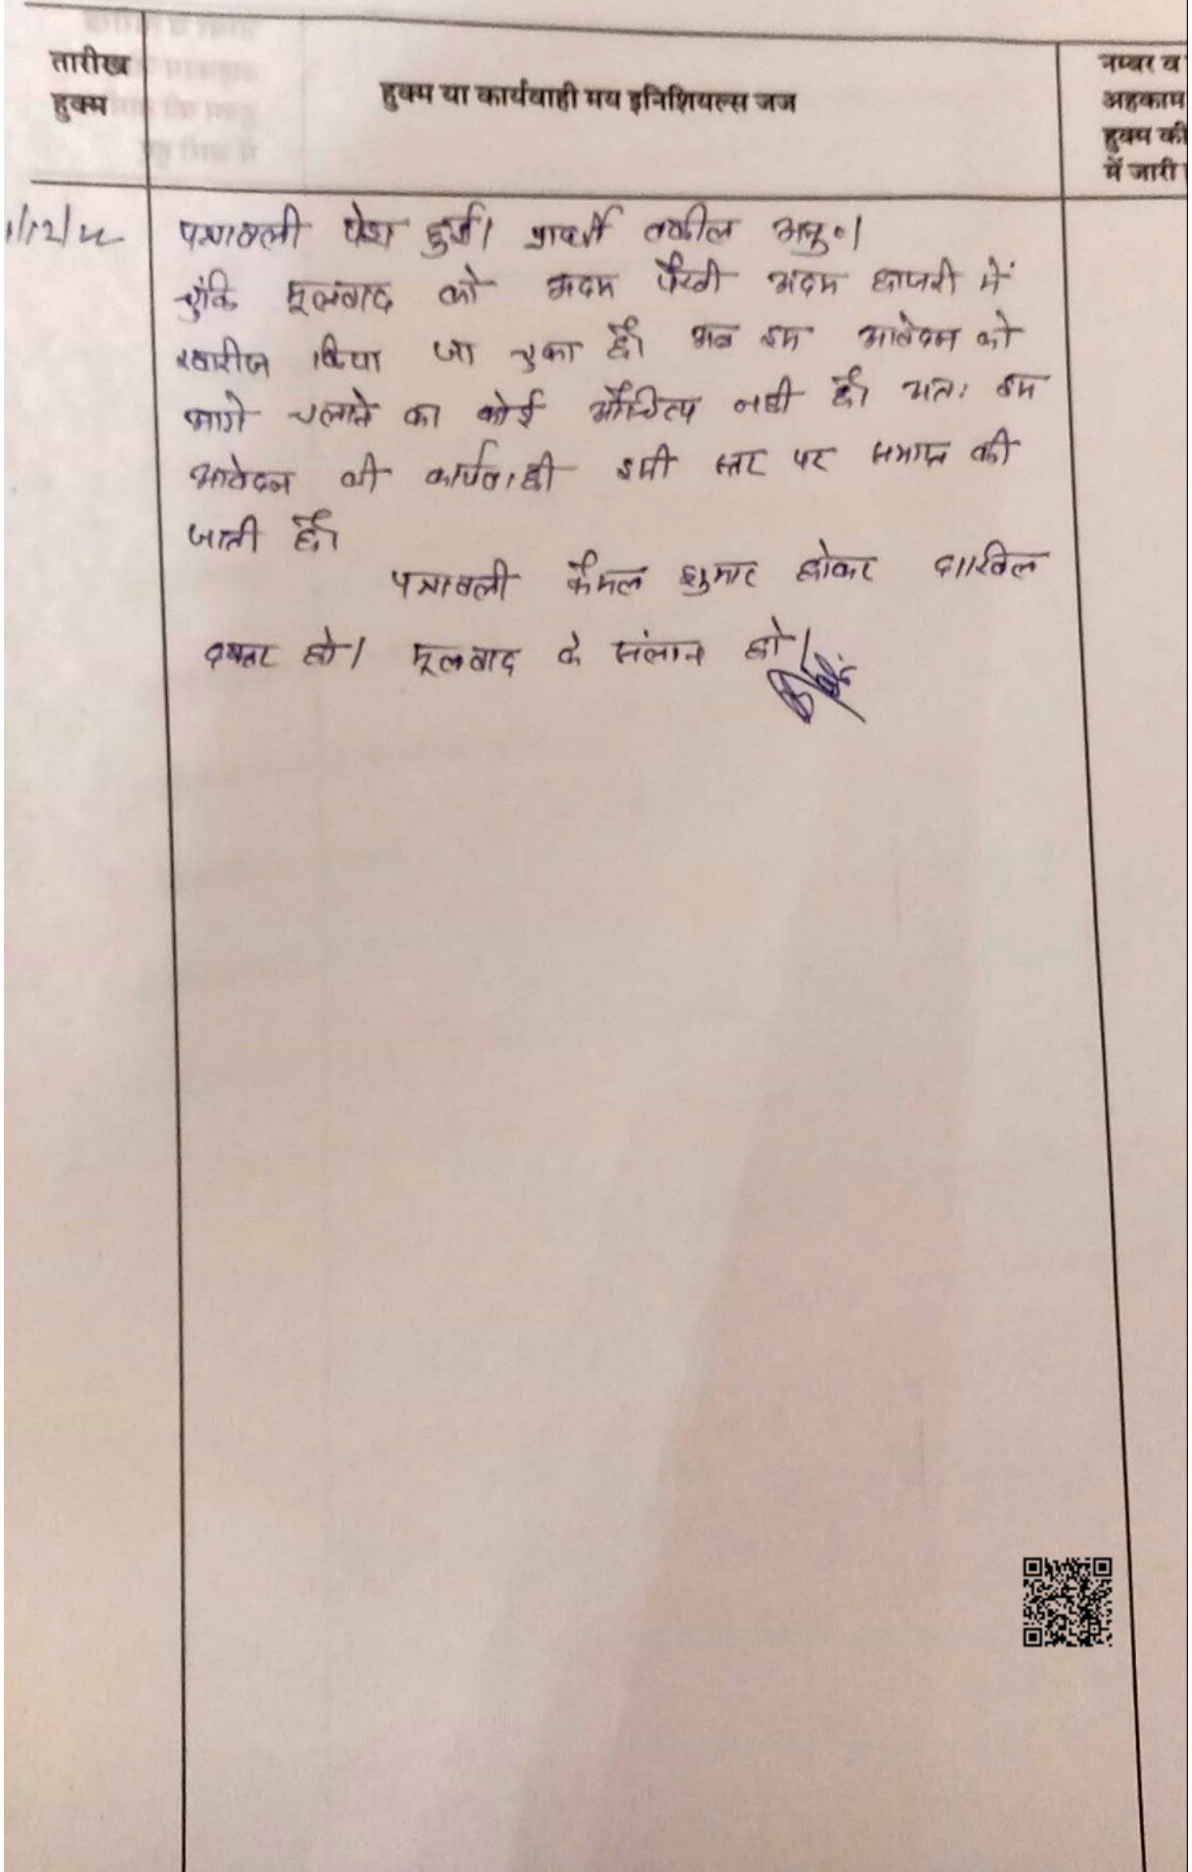 तारीख
हुक्म
हुक्म या कार्यवाही मय इनिशियल्स जज
नम्बर व
अहकाम
हुक्म की
में जारी
पत्रावली पेश हुई। प्रार्थी वकील अनु०।
चुंकि मूलवाद को अदम पैरवी अदम हाजरी में
खारीज किया जा चुका है। अब इस आवेदन को
आगे चलाने का कोई औचित्य नही है। अतः इस
आवेदन की कार्यवाही इसी स्तर पर समाप्त की
जाती है।
पत्रावली फैसल शुमार होकर दाखिल
दफ्तर हो। मूलवाद के संलग्न हो।